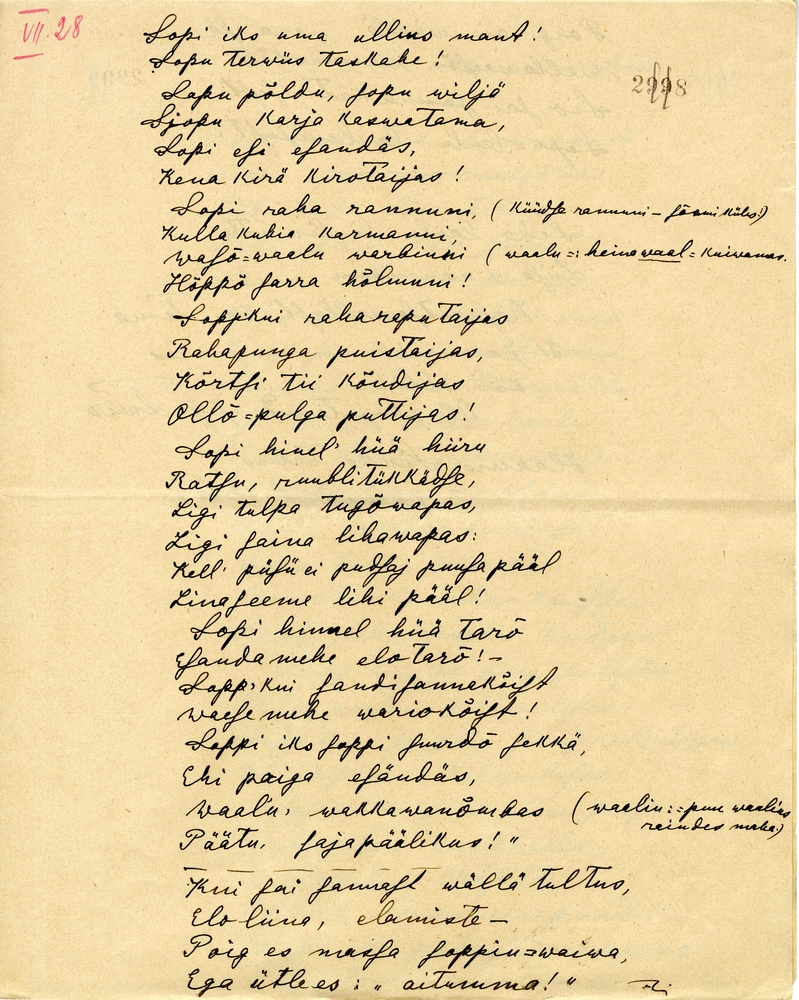 VII 28
Sopi iks uma ullins mant!
Sopu terwüs taskahe!
2998
Sopu põldu, sopu wiljä
Sjopu karja kaswatama,
Sopi esi esändäs,
Kena kirä kirotaijas!
Sopi raha rannuni, (küüdse rannuni – sõõmi küles!)
Kulla kukia karmanni,
wasõ=waalu warbinni (waalu =: heinawaal = kuiwamas.
Hõppõ sarra hõlmuni!
Sopp'kui raharaputaijas
Rahapunga puistaijas,
Kõrtsi tii kõndijas
Ollõ=pulga puttijas!
Sopi hinel' hüä hiiru
Ratsu, ruublitükkädse,
Ligi tulpa tugõwapas,
Ligi saina lihawapas:
Kell' püsü ei pudsaj puusa pääl
Linaseeme lihi pääl!
Sopi hinnel hüä tarõ
Esanda mehe elotarõ! –
Sopp'kui sandisannakõist
waese mehe wariokõist!
Soppi iks soppi suurdõ sekkä,
Ehi paiga esändäs,
Waalu, wakkawanõmbas (waalin: = puu waalins
reindes maha.)
Päätu, sajapäälikus!"
Kui sai sannast wällä tultus,
Elo liina, elamiste –
Poig es massa soppin=waiwa,
Ega ütle es: "aitumma!"